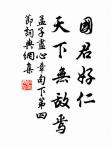 國君好仁
天下無敵焉
孟子盡心章句下第四
節詞與網集